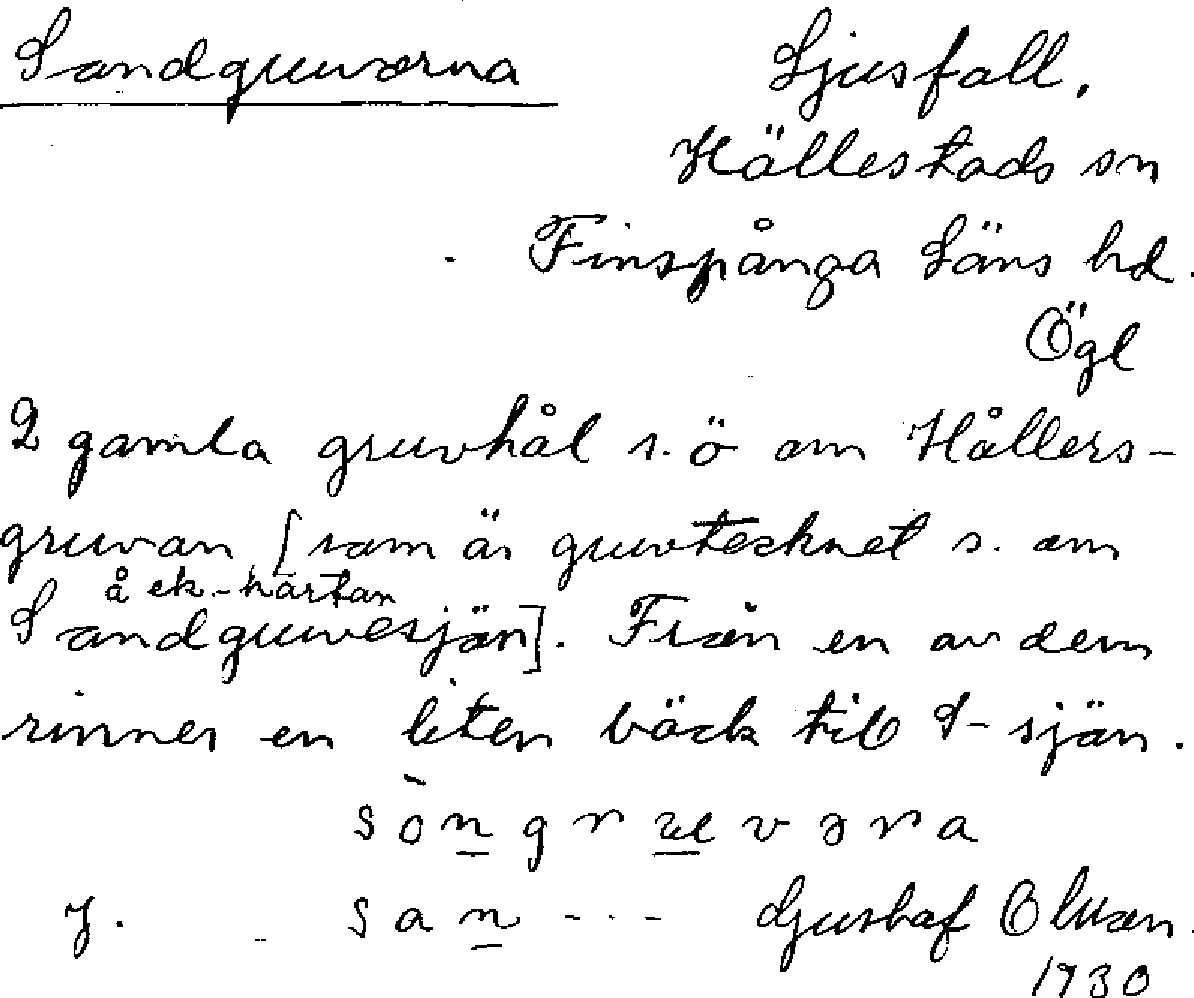 Sandgruvorna
Ljusfall,
Hällestads sn
Finspånga Läns hd.
Ögl
2 gamla gruvhål s.ö om Hållers-
gruvan [som är gruvtecknet s. om
å ek-kartan
Sandgruvesjön]. Från en av dem
rinner en liten bäck till S-sjön.
sòn gruvəra
y. san --- Gustaf Olsson.
1930